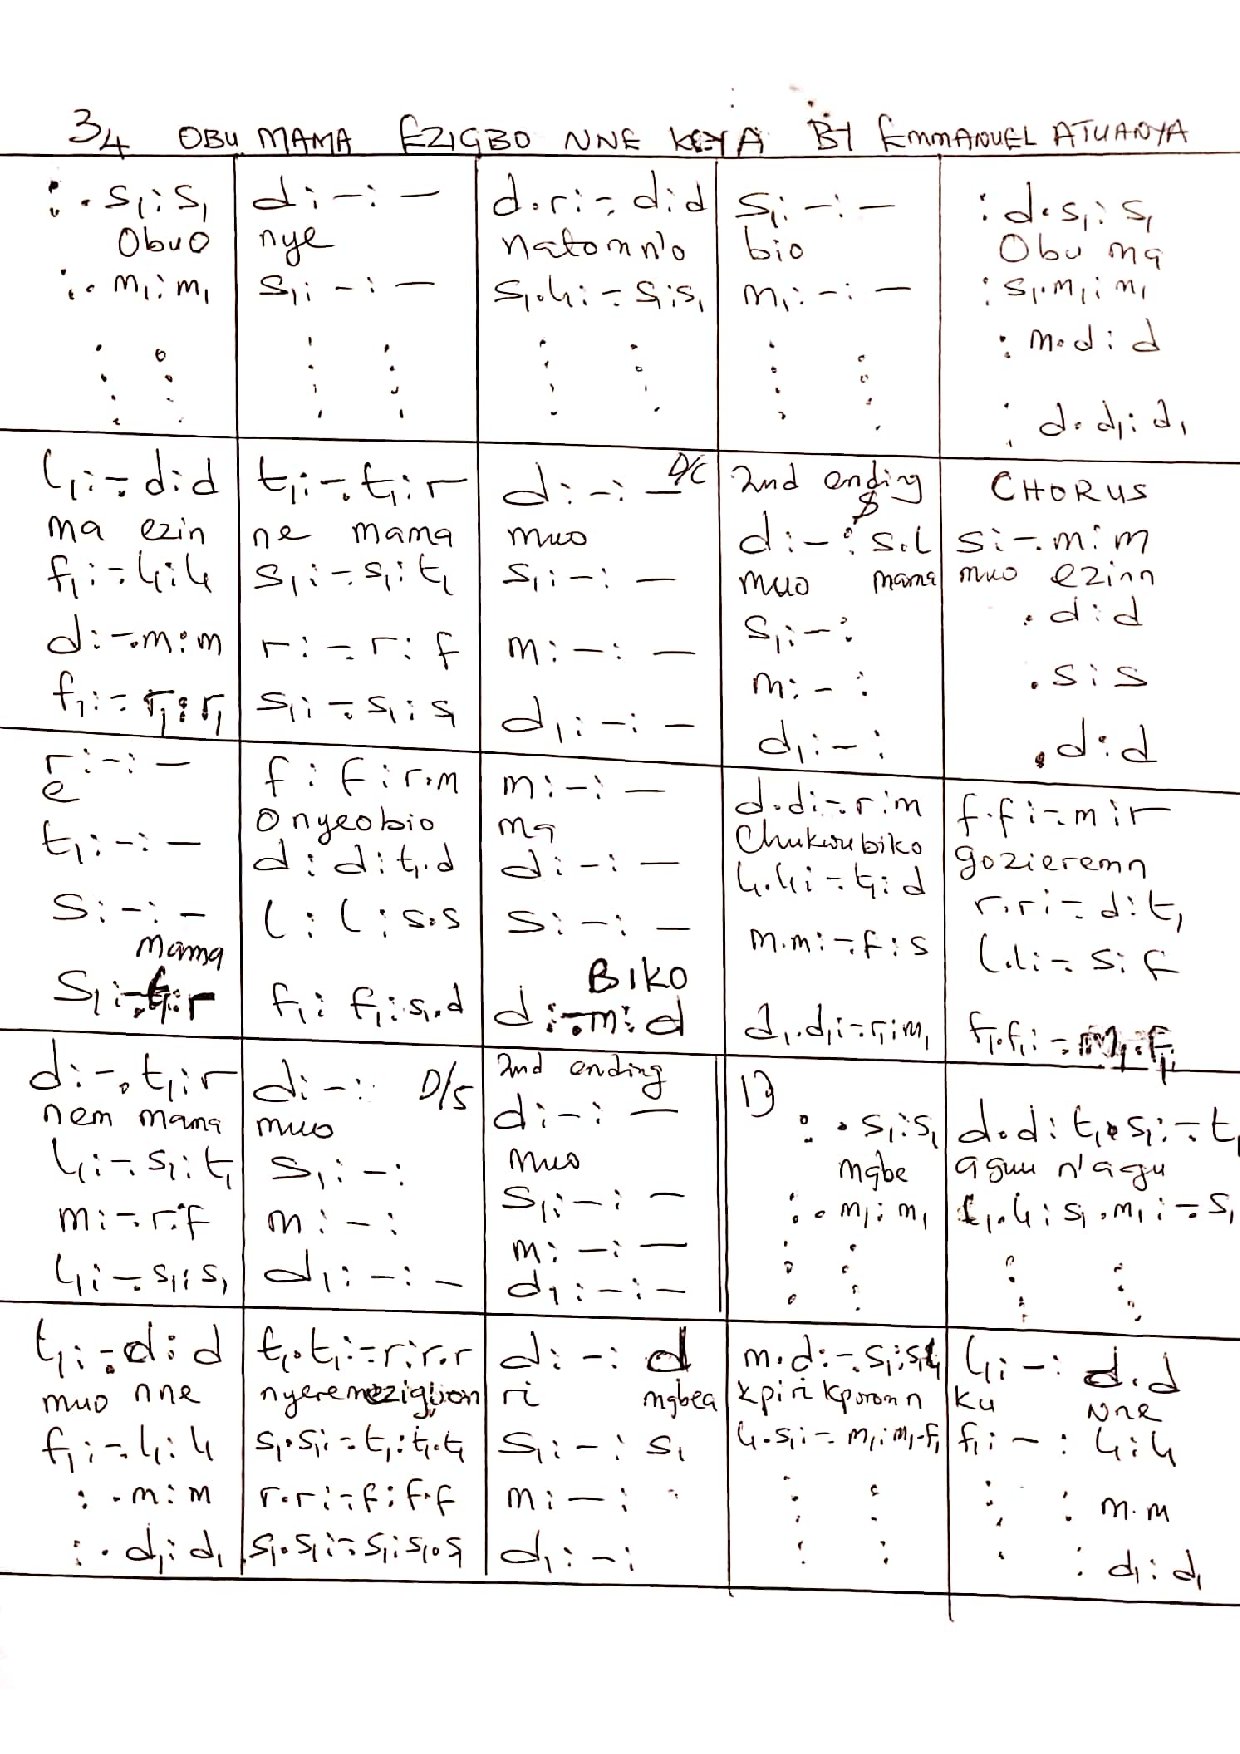 3/4 OBU MAMA EZIGBO NNE KEY A BY EMMANUEL ATUANYA
: . s₁ : s₁
Obuo
: . m₁ : m₁
d : - : -
nye
s₁ : - : -
d . r : - . d : d
natomn'o
s₁ . l₁ : - s₁ : s₁
s₁ : - : -
bio
m₁ : - : -
: d . s₁ : s₁
Obu ma
: s₁ . m₁ : m₁
: m . d : d
: d . d₁ : d₁
l₁ : - . d : d
ma ezin
f₁ : - l₁ : l₁
d : - . m : m
f₁ : - r₁ : r₁
t₁ : - . t₁ : r
ne mama
s₁ : - s₁ : t₁
r : - r : f
s₁ : - s₁ : s₁
d : - : - D/C
muo
s₁ : - : -
m : - : -
d₁ : - : -
2nd ending
$
d : - : s . l
muo mama
s₁ : - :
m : - :
d₁ : - :
CHORUS
s : - . m : m
muo ezinn
. d : d
. s : s
. d : d
r : - : -
e
t₁ : - : -
s : - : -
mama
s₁ : - t₁ : r
f : f : r . m
onyeobio
d : d : t₁ . d
l : l : s . s
f₁ : f₁ : s₁ . d
m : - : -
ma
d : - : -
s : - : -
BIKO
d : - . m : d
d . d : - . r : m
Chukwu biko
l₁ . l₁ : - t₁ : d
m . m : - . f : s
d₁ . d₁ : - r₁ : m₁
f . f : - . m : r
gozieremn
r . r : - d : t₁
l . l : - s : f
f₁ . f₁ : - m₁ . f₁
d : - . t₁ : r
nem mama
l₁ : - s₁ : t₁
m : - r : f
l₁ : - s₁ : s₁
d : - : D/S
muo
s₁ : - :
m : - :
d₁ : - : -
2nd ending
d : - : -
muo
s₁ : - : -
m : - : -
d₁ : - : -
: . s₁ : s₁
mgbe
: . m₁ : m₁
d . d : t₁ . s₁ : - t₁
aguu n'agu
l₁ : s₁ . m₁ : - s₁
t₁ : - d : d
muo nne
f₁ : - l₁ : l₁
: . m : m
: . d₁ : d₁
t₁ . t₁ : - r : r . r
nyeremezigbon
s₁ . s₁ : - t₁ : t₁ . t₁
r . r : - f : f . f
s₁ . s₁ : - s₁ : s₁ . s₁
d : - : d
ri mgbea
s₁ : - : s₁
m : - :
d₁ : - :
m . d : - . s₁ : s₁ l₁
kpiri kporomn
l₁ . s₁ : - m₁ : m₁ . f₁
l₁ : - : d . d
ku Nne
f₁ : - : l₁ : l₁
: m . m
: d₁ : d₁